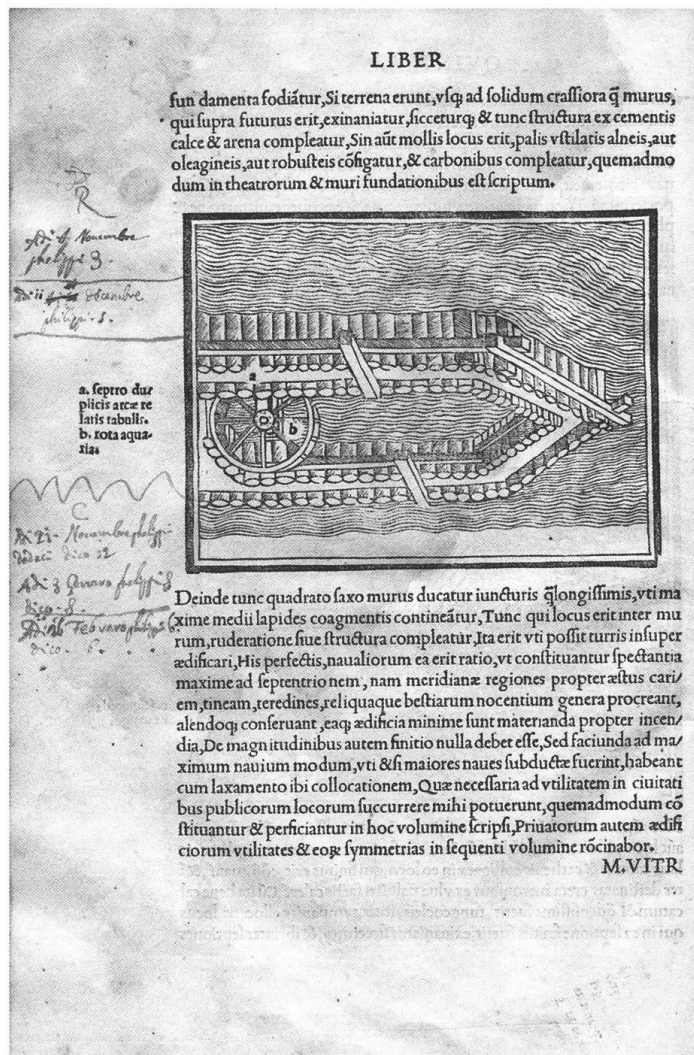 LIBER
fun damenta fodiãtur, Si terrena erunt, vſqꝫ ad ſolidum craſſiora q̃ murus,
qui ſupra futurus erit, exinaniatur, ſicceturqꝫ & tunc ſtructura ex cementis
calce & arena compleatur, Sin aũt mollis locus erit, palis vſtilatis alneis, aut
oleagineis, aut robuſteis cõfigatur, & carbonibus compleatur, quemadmo
dum in theatrorum & muri fundationibus eſt ſcriptum.
R
Novembre
phelippi 3.
Adi ii decembre
philippi - 8.
a
b
a. ſeptro du/
plicis arcæ re
latis tabulis.
b. rota aqua-
ria.
Adi 21 - Novembre phelippi
dico 22
Adi 3 phelippi 8
Febvaro
dico - 6.
Deinde tunc quadrato ſaxo murus ducatur iuncturis q̃longiſſimis, vti ma
xime medii lapides coagmentis contineãtur, Tunc qui locus erit inter mu
rum, ruderatione ſiue ſtructura compleatur, Ita erit vti poſſit turris inſuper
ædificari, His perfectis, naualiorum ea erit ratio, vt conſtituantur ſpectantia
maxime ad ſeptentrio nem, nam meridianæ regiones propter æſtus cari/
em, tineam, teredines, reliquaque beſtiarum nocentium genera procreant,
alendoqꝫ conſeruant, eaqꝫ ædificia minime ſunt materianda propter incen/
dia, De magn itudinibus autem finitio nulla debet eſſe, Sed faciunda ad ma/
ximum nauium modum, vti & ſi maiores naues ſubductæ fuerint, habeant
cum laxamento ibi collocationem, Quæ neceſſaria ad vtilitatem in ciuitati
bus publicorum locorum ſuccurrere mihi potuerunt, quemadmodum cõ
ſtituantur & perficiantur in hoc volumine ſcripſi, Priuatorum autem ædifi
ciorum vtilitates & eoꝝ ſymmetrias in ſequenti volumine rõcinabor.
M.VITR